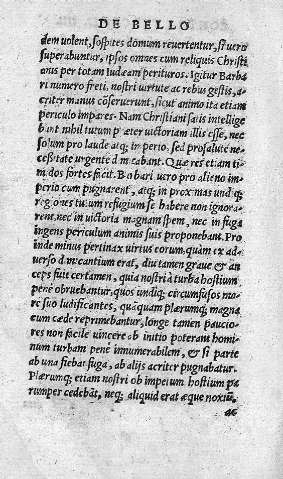 DE BELLO
dem uolent, sospites domum reuertentur, si uero
superabuntur, ipsos omnes cum reliquis Christi
anis per totam Iudæam perituros. Igitur Barba
ri numero freti, nostri uirtute ac rebus gestis, a
criter manus cōseruerunt, sicut animo ita etiam
periculo impares. Nam Christiani satis intellige
bant nihil tutum præter uictoriam illis esse, nec
solum pro laude atq; imperio, sed pro salute ne
cessitate urgente dimicabant. Quæ res etiam ti
midos fortes facit. Barbari uero pro alieno im
perio cum pugnarent, atq; in proximas undiq;
regiones tutum refugium se habere non ignora
rent, nec in uictoria magnam spem, nec in fuga
ingens periculum animis suis proponebant. Pro
inde minus pertinax uirtus eorum, quàm ex ad
uerso dimicantium erat, diu tamen graue & an
ceps fuit certamen, quia nostri à turba hostium
penè obruebantur, quos undiq; circumfusos mo
re suo ludificantes, quāquàm plærumq; magna
cum cæde reprimebantur, longe tamen paucio
res non facile uincere ab initio poterant homi
num turbam penè innumerabilem, & si parte
ab una fiebat fuga, ab alijs acriter pugnabatur.
Plærumq; etiam nostri ob impetum hostium pa
rumper cedebāt, neq; aliquid erat æque noxiū,